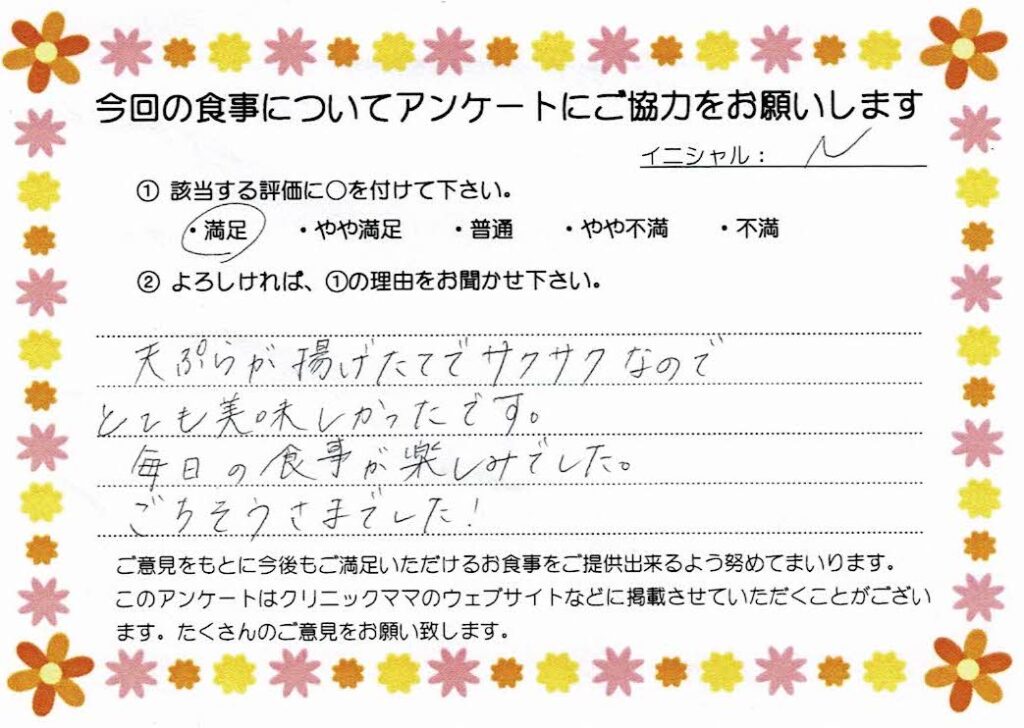 今回の食事についてアンケートにご協力をお願いします
イニシャル： N
① 該当する評価に○を付けて下さい。
・満足 ・やや満足 ・普通 ・やや不満 ・不満
② よろしければ、①の理由をお聞かせ下さい。
天ぷらが揚げたてでサクサクなので
とても美味しかったです。
毎日の食事が楽しみでした。
ごちそうさまでした！
ご意見をもとに今後もご満足いただけるお食事をご提供出来るよう努めてまいります。
このアンケートはクリニックママのウェブサイトなどに掲載させていただくことがござい
ます。たくさんのご意見をお願い致します。